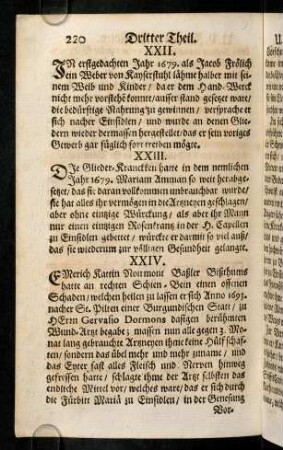 220 Dritter Theil.
XXII.
IN erstgedachten Jahr 1679. als Jacob Frölich
ein Weber von Kayserstuhl lähme halber mit sei-
nem Weib und Kinder / da er dem Hand-Werck
nicht mehr vorstehē konte / ausser stand gesetzt ware /
die bedürftige Nahrung zu gewinnen / versprache er
sich nacher Einsidlen / und wurde an denen Glie-
dern wieder dermassen hergestellet / das er sein voriges
Gewerb gar füglich fort treiben mögte.
XXIII.
DJe Glieder-Kranckheit hatte in dem nemlichen
Jahr 1679. Mariam Amman so weit herabge-
setzet / das sie daran vollkommen unbrauchbar wurde /
sie hat alles ihr vermögen in die Artzneyen geschlagen /
aber ohne eintzige Würckung / als aber ihr Mann
nur einen eintzigen Rosenkrantz in der H. Capellen
zu Einsidlen gebettet / würckte er darmit so viel auß /
das sie wiederum zur völligen Gesundheit gelangte.
XXIV.
EMerich Kattin Normont Baßler Bißthums
hatte an rechten Schien-Bein einen offenen
Schaden / welchen heilen zu lassen er sich Anno 1693.
nacher St. Pilten einer Burgundischen Statt / zu
HErrn Gervasio Dormons dasigen berühmten
Wund-Artzt begabe; massen nun alle gegen 3. Mo-
nat lang gebrauchte Artzneyen ihme keine Hülf schaf-
ten / sondern das übel mehr und mehr zuname / und
das Eyter fast alles Fleisch und Nerven hinweg
gefressen hatte / schlagte ihme der Artzt selbsten das
endliche Mittel vor / welches ware / das er sich durch
die Fürbitt Mariä zu Einsidlen / in der Genesung
Vor-